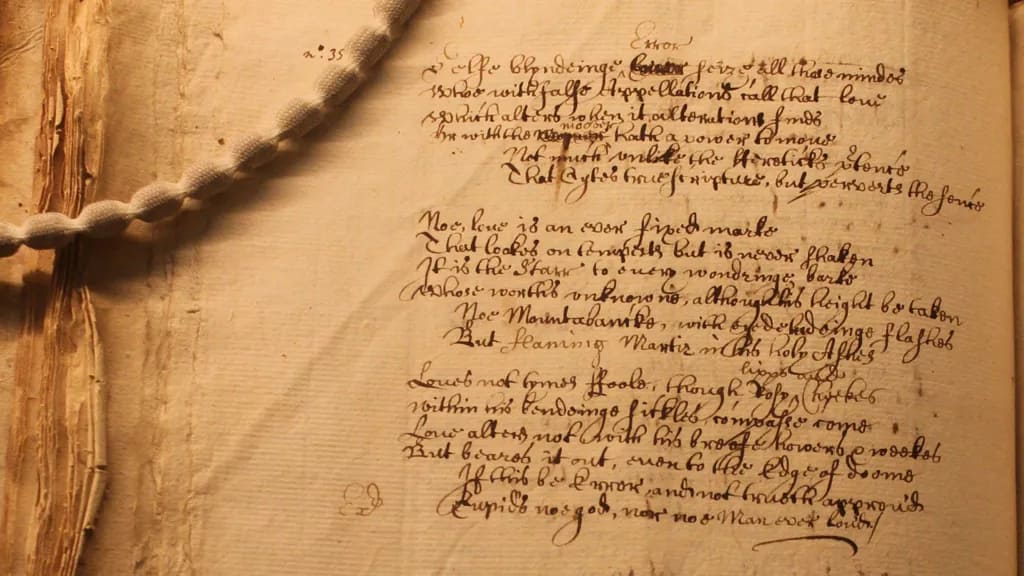 n:° 35
Error
Selfe blyndeinge seize all those mindes
Whoe with false Appellations call that love
Which alters when it alterations finds
Or with the mover hath a power to move
Not much unlike the Heretickes ptence
That Cytes true scripture, but perverts the sence
Noe, love is an ever fixed marke
That lookes on tempests but is never shaken
It is the Starr to every wondringe barke
Whose worths unknowne, although his height be taken
Noe Mountabancke, with eydeludeinge flashes
But flaming Martir in his holy Ashes
lipps and
Loves not tymes Foole, though Rosy Cheekes
within his bendeinge sickles compasse come
Love alters not with his breife howers & weekes
But beares it out, even to the Edge of doome
If this be Error and not trueth approv'd
Cupids noe god, nor noe Man ever lov'd